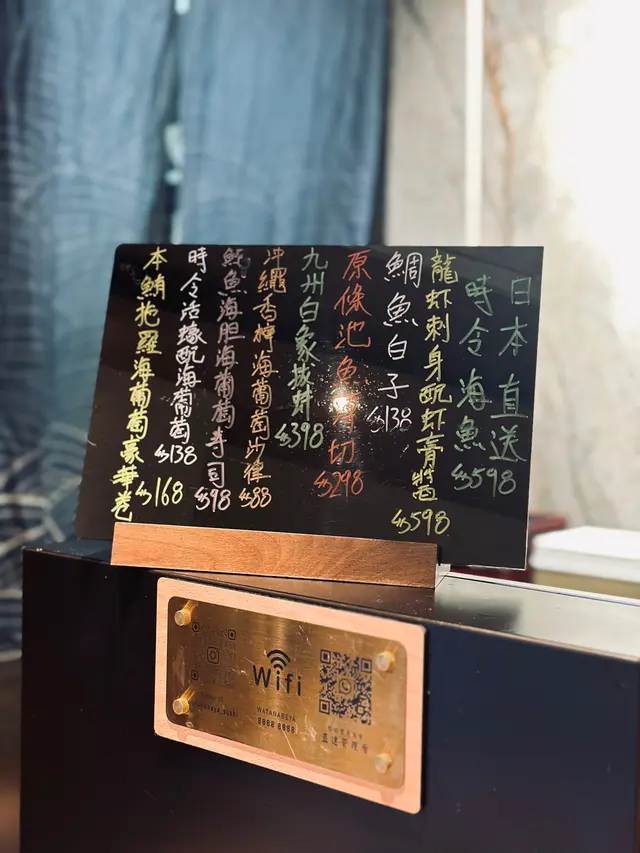 日本直送
時令海魚 $598
龍虾刺身配虾膏醬 $598
鯛魚白子 $138
原條池魚薄切 $298
九州白象拔蚌 $398
沖繩香檸海葡萄沙律 $88
魷魚海胆海葡萄寿司 $98
時令活蠔配海葡萄 $138
本鮪拖羅海葡萄豪華卷 $168
Wifi
WATANABEYA
8888 8888